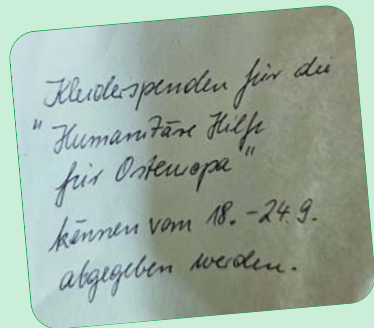 Kleiderspenden für die
"Humanitäre Hilfe
für Osteuropa"
können vom 18. - 24.9.
abgegeben werden.